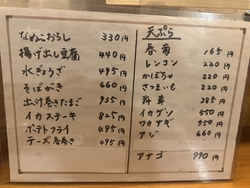 なめこおろし 330円
揚げ出し豆腐 440円
水ぎょうざ 495円
そばがき 660円
出汁巻きたまご 935円
イカステーキ 825円
ポテトフライ 495円
チーズ春巻き 495円
天ぷら
春菊 165円
レンコン 220円
かぼちゃ 220円
さつまいも 220円
舞茸 385円
イカゲソ 550円
ワカサギ 550円
アジ 660円
アナゴ 990円